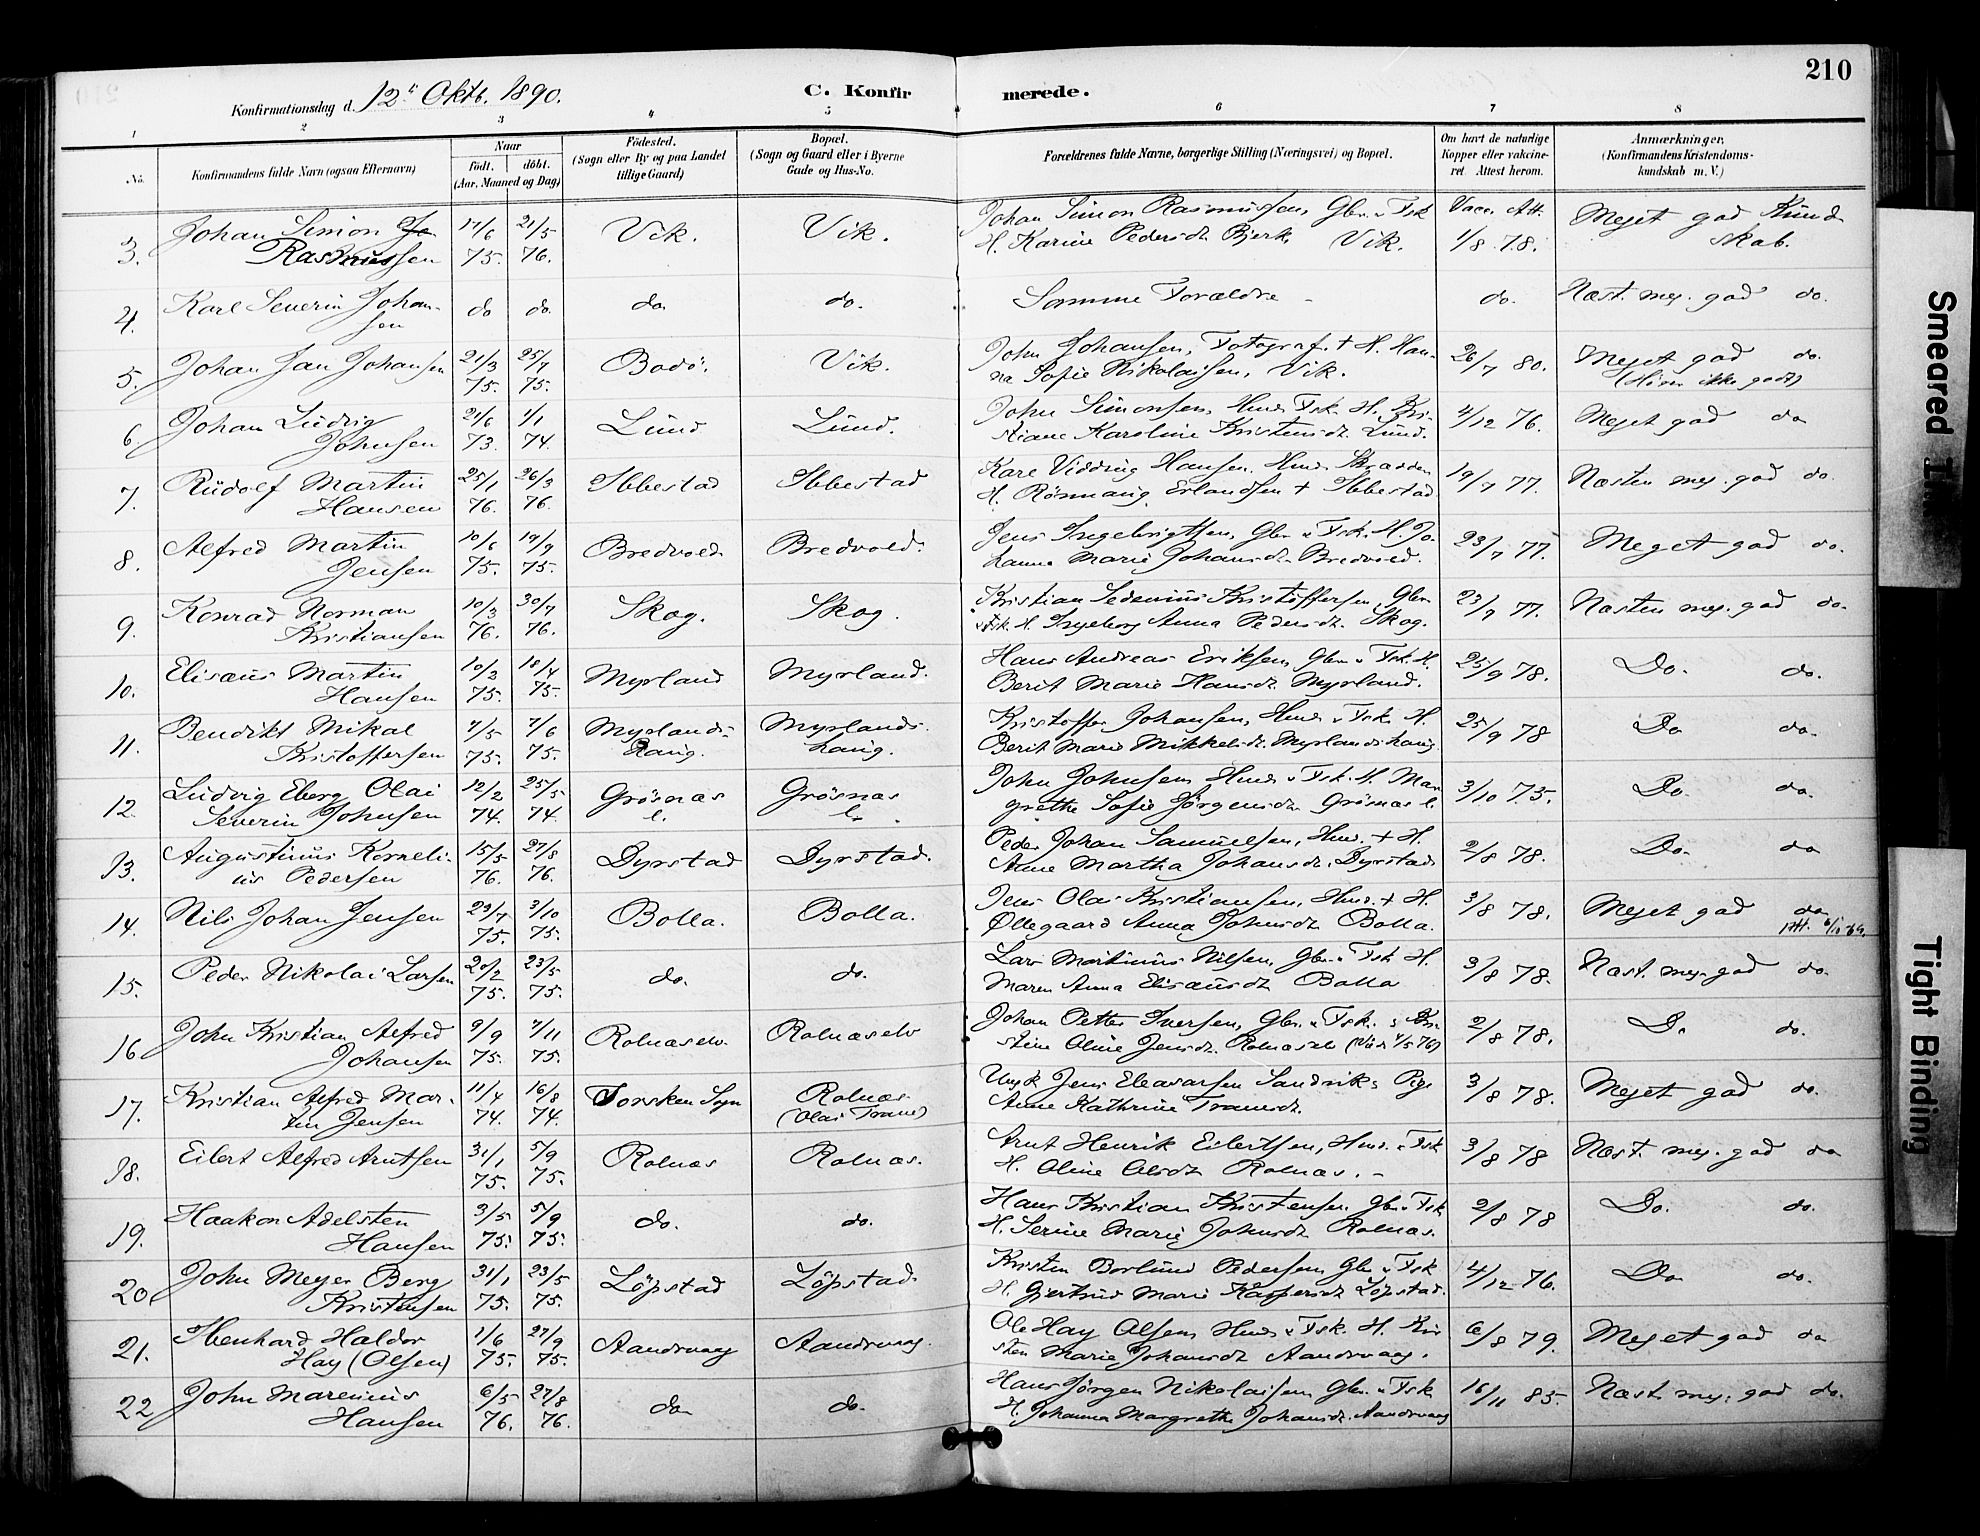 210
Konfirmationsdag d. 12te Oktb. 1890.
C. Konfirmerede.
1 2 3 4 5 6 7 8
No.
Konfirmandens fulde Navn (ogsaa Efternavn)
Naar
født. døbt.
(Aar, Maaned og Dag)
Födested.
(Sogn eller By og paa Landet
tillige Gaard)
Bopæl.
(Sogn og Gaard eller i Byerne
Gade og Hus-No.
Forældrenes fulde Navne, borgerlige Stilling (Næringsvei) og Bopæl.
Om havt de naturlige
Kopper eller vakcine-
ret. Attest herom.
Anmærkninger.
(Konfirmandens Kristendoms-
kundskab m. V.)
3. Johan Simon Jo 17/6 21/5 Vik. Vik. Johan Simon Rasmussen, Gbr. & Fsk Vacc. Att. Meget god Kund
Rasmussen 75. 76. H. Karine Pedersdt. Bjerk, Vik. 1/8 78. skab.
4. Karl Severin Johan- do do. do do. Samme Forældre – do. Næst. meg. god do.
sen
5. Johan Jan Johansen 21/3 25/7 Bodö. Vik. John Johansen, Fotograf + H. Han- 26/7 80. Meget god do.
75. 75. na Sofie Nikolaisen, Vik. (Skriver ikke godt)
6. Johan Ludvig 21/6 1/1 Lund Lund. John Simonsen Hmd. Fsk. H. Kri- 4/12 76. Meget god do
Johnsen 73. 74. stiane Karoline Kristensdt. Lund.
7. Rudolf Martin 25/1 26/3 Ibbestad Ibbestad Karl Vidding Hansen. Hmd. Skrædder 19/7 77. Næsten meg. god do.
Hansen 76. 76. H. Rönnaug Erlandsen + Ibbestad
8. Alfred Martin 10/6 19/9 Bredvold Bredvold. Jens Ingebrigtsen, Gbr. & Fsk. H. Jo- 23/7 77. Meget god do.
Jensen 75. 75. hanna Marie Johansdt. Bredvold.
9. Konrad Norman 10/3 30/7 Skog. Skog. Kristian Sedenius Kristoffersen, Gbr. 23/7 77. Næsten meg. god do.
Kristiansen 76. 76. & Fsk. H. Ingeborg Anna Pedersdt. Skog.
10. Elisæus Martin 10/3 18/4 Myrland Myrland. Hans Andreas Eriksen Gbr. & Fsk. H. 25/9 78. Do. do.
Hansen 75. 75. Berit Marie Hansdt. Myrland.
11. Bendikt Mikal 7/5 7/6 Myrlands- Myrlands- Kristoffer Johansen, Hmd. & Fsk. H. 25/9 78 Do do.
Kristoffersen 75. 75. haug. haug. Berit Marie Mikkelsdt. Myrlandshaug
12. Ludvig Eberg Olai 12/2 25/5 Grösnæs Grösnæs John Johnsen Hmd. & Fsk. H. Mar- 3/10 75. Do. do.
Severin Johnsen 74. 74. l. l. grethe Sofie Jörgensdt. Grösnæs l.
13. Augustinus Korneli- 15/5 27/8 Dyrstad Dyrstad. Peder Johan Samuelsen, Hmd. + H. 2/8 78. Do. do
us Pedersen 76. 76. Anne Martha Johansdt. Dyrstad
14. Nils Johan Jensen 29/7 3/10 Bolla. Bolla. Jens Olai Kristiansen, Hmd. + H. 3/8 78. Meget god do
75. 75. Ollegaard Anna Johnsdt. Bolla.
15. Peder Nikolai Larsen 20/2 23/5 do. do. Lars Martinus Nilsen, Gbr. & Fsk H. 3/8 78. Næst. meg. god do.
75. 75. Maren Anna Elisæusdt. Bolla
16. John Kristian Alfred 9/9 7/11 Rolnæselv. Rolnæselv Johan Petter Iversen, Gbr. & Fsk. & Kri- 2/8 78. Do do.
Johansen 75. 75. stine Oline Jensdt. Rolnæselv (Viet 4/5 76)
17. Kristian Alfred Mar- 11/4 16/8 Torsken Sogn Rolnæs Ungk. Jens Eleasarsen Sandvik & Pige 3/8 78. Meget god do.
tin Jensen 74. 74. (Olai Trane) Anne Kathrine Tranesdt.
18. Eilert Alfred Arntsen 31/1 5/9 Rolnæs Rolnæs. Arnt Henrik Eilertsen, Hmd. & Fsk 3/8 78 Næst. meg. god do
75. 75. H. Oline Olsdt. Rolnæs. –
19. Haakon Adelsten 3/5 5/9 do. do. Hans Kristian Kristensen Gbr. & Fsk 2/8 78 Do. do.
Hansen 75. 75. H. Serine Marie Johnsdt. Rolnæs.
20. John Meyer Berg 31/1 23/5 Löpstad Löpstad. Kristen Borlund Pedersen Gbr. & Fsk 4/12 76. Do do.
Kristensen 75. 75. H. Gjertrud Marie Kaspersdt. Löpstad.
21. Ibenhard Haldor 1/6 27/9 Aandervaag Aandervaag. Ole Hay Olsen Hmd. & Fsk. H. Kir- 6/8 79. Meget god do
Hay (Olsen) 75. 75. sten Marie Johansdt. Aandervaag.
22. John Marenius 6/5 27/8 do do. Hans Jörgen Nikolaisen Gbr. & Fsk 16/11 85. Næst. meg. god do.
Hansen 76. 76. H. Johanna Margrethe Johansdt. Aandervaag
Smeared Ink
Tight Binding